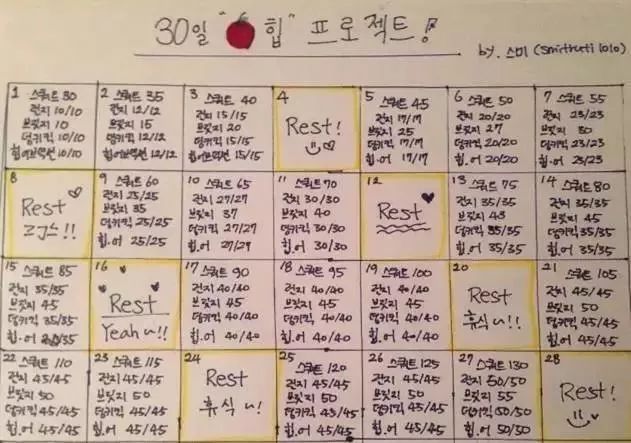 30일 "힙" 프로젝트!
by. 스미 (smittuti lolo)
1 스쿼트 30
런지 10/10
브릿지 10
덩키킥 10/10
힙어브덕션 10/10
2 스쿼트 35
런지 12/12
브릿지 15
덩키킥 12/12
힙어브덕션 12/12
3 스쿼트 40
런지 15/15
브릿지 20
덩키킥 15/15
힙어브덕션 15/15
4
Rest!
5 스쿼트 45
런지 17/17
브릿지 25
덩키킥 17/17
힙.어 17/17
6 스쿼트 50
런지 20/20
브릿지 27
덩키킥 20/20
힙.어 20/20
7 스쿼트 55
런지 23/23
브릿지 30
덩키킥 23/23
힙.어 23/23
8
Rest
고고스!!
9 스쿼트 60
런지 25/25
브릿지 35
덩키킥 25/25
힙.어 25/25
10 스쿼트 65
런지 27/27
브릿지 37
덩키킥 27/27
힙.어 27/27
11 스쿼트 70
런지 30/30
브릿지 40
덩키킥 30/30
힙.어 30/30
12
Rest
13 스쿼트 75
런지 35/35
브릿지 43
덩키킥 35/35
힙.어 35/35
14 스쿼트 80
런지 35/35
브릿지 45
덩키킥 35/35
힙.어 35/35
15 스쿼트 85
런지 35/35
브릿지 45
덩키킥 35/35
힙.어 35/35
16
Rest
Yeah~!!
17 스쿼트 90
런지 40/40
브릿지 45
덩키킥 40/40
힙.어 40/40
18 스쿼트 95
런지 40/40
브릿지 45
덩키킥 40/40
힙.어 40/40
19 스쿼트 100
런지 40/40
브릿지 45
덩키킥 40/40
힙.어 40/40
20
Rest
휴식~!!
21 스쿼트 105
런지 45/45
브릿지 50
덩키킥 45/45
힙.어 45/45
22 스쿼트 110
런지 45/45
브릿지 50
덩키킥 45/45
힙.어 45/45
23 스쿼트 115
런지 45/45
브릿지 50
덩키킥 45/45
힙.어 45/45
24
Rest
휴식~!
25 스쿼트 120
런지 45/45
브릿지 50
덩키킥 45/45
힙.어 45/45
26 스쿼트 125
런지 45/45
브릿지 50
덩키킥 45/45
힙.어 45/45
27 스쿼트 130
런지 50/50
브릿지 55
덩키킥 50/50
힙.어 50/50
28
Rest!